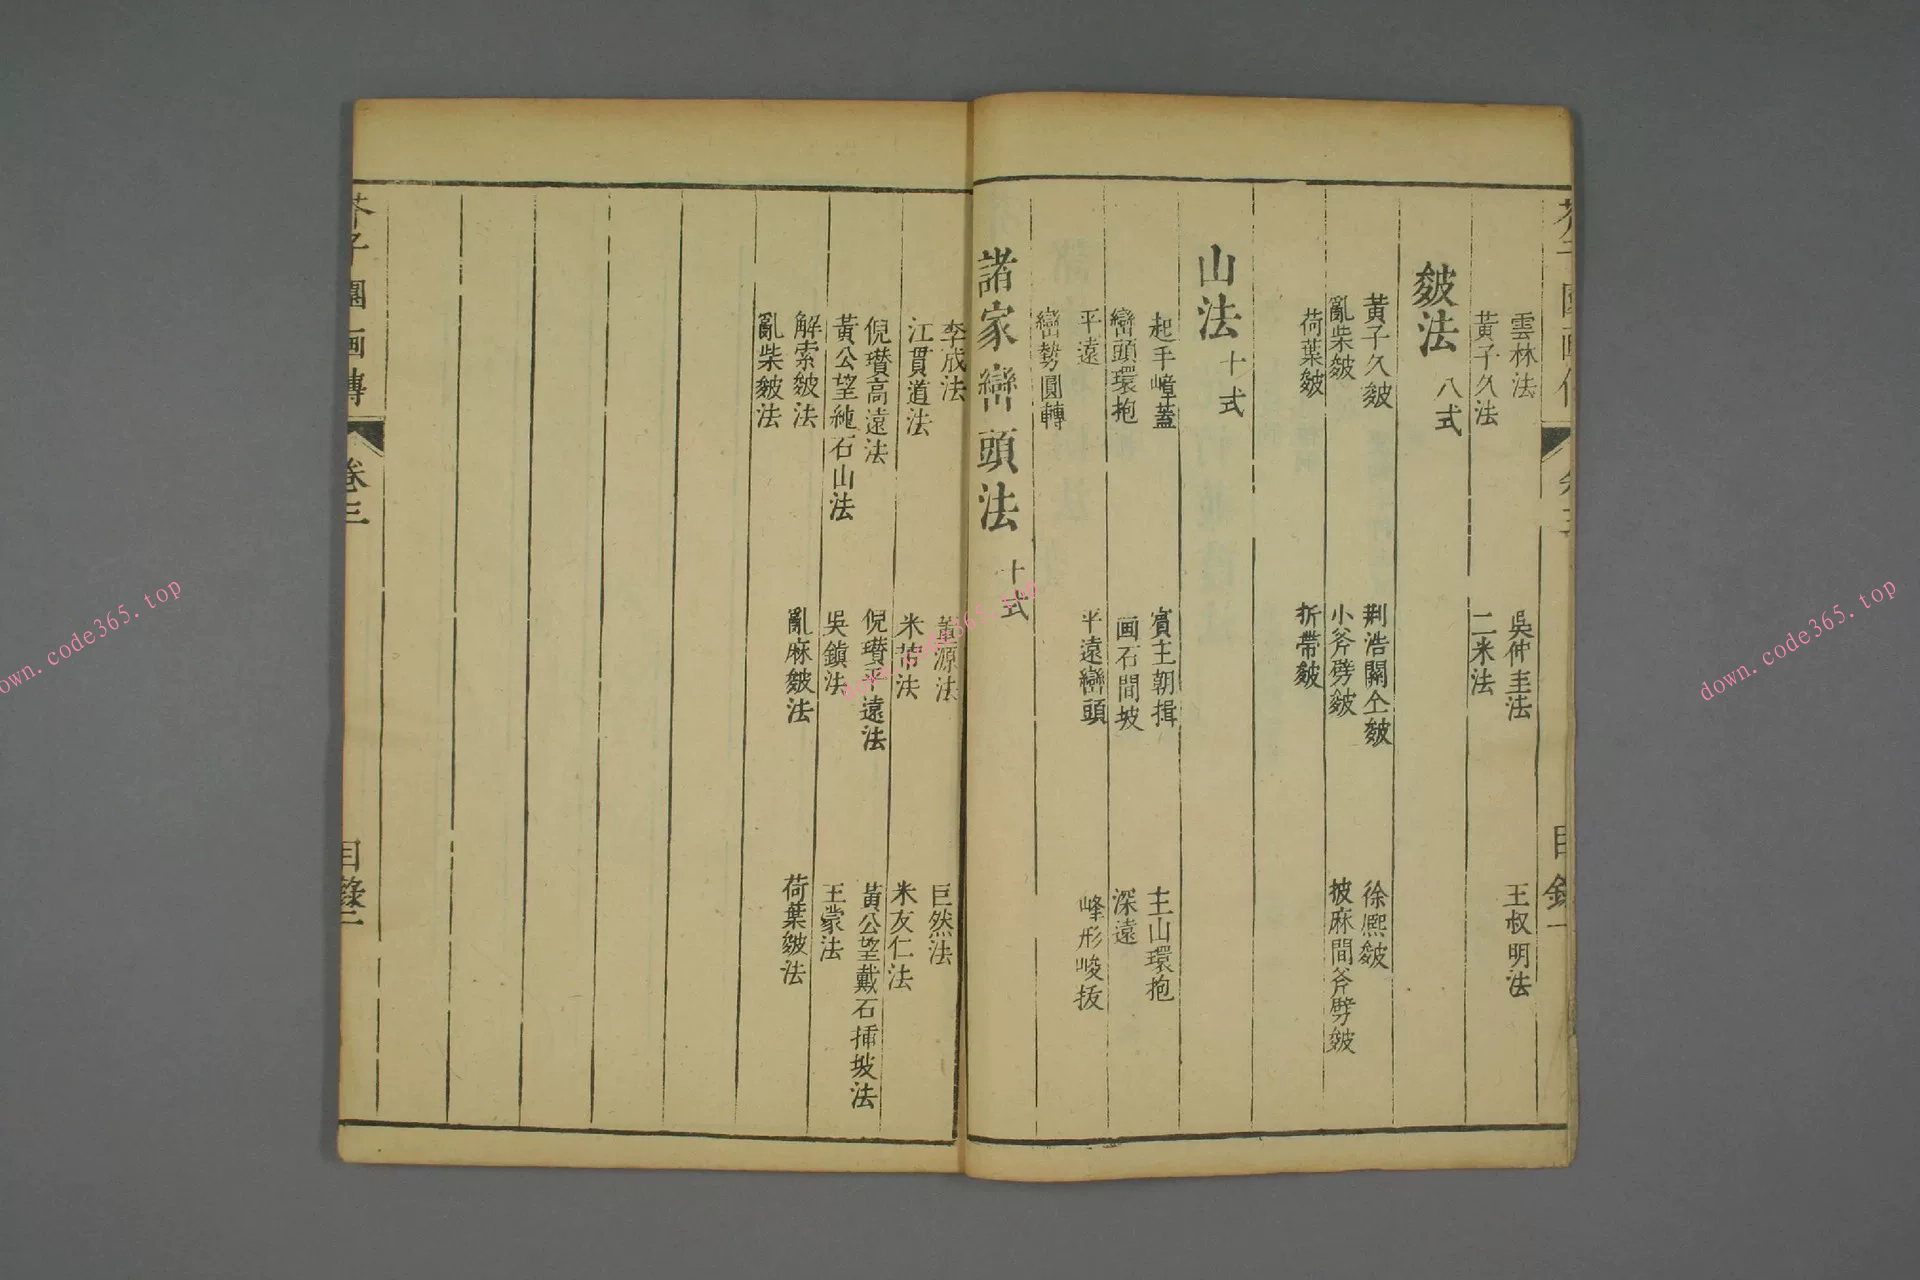 雲林法　吳仲圭法　王叔明法
黃子久法　二米法
皴法 八式
黃子久皴　荆浩關仝皴　徐熙皴
亂柴皴　小斧劈皴　披麻間斧劈皴
荷葉皴　折帶皴
山法 十式
起手嶂蓋　賓主朝揖　主山環抱
巒頭環抱　画石間坡　深遠
平遠　平遠巒頭　峰形峻抜
巒勢圓轉
諸家巒頭法 十式
李成法　董源法　巨然法
江貫道法　米芾法　米友仁法
倪瓚高遠法　倪瓚平遠法　黃公望戴石揷坡法
黃公望純石山法　吳鎮法　王蒙法
解索皴法　亂麻皴法　荷葉皴法
亂柴皴法
芥子園画傳 卷三 目錄二
down.code365.top
down.code365.top
own.code365.top